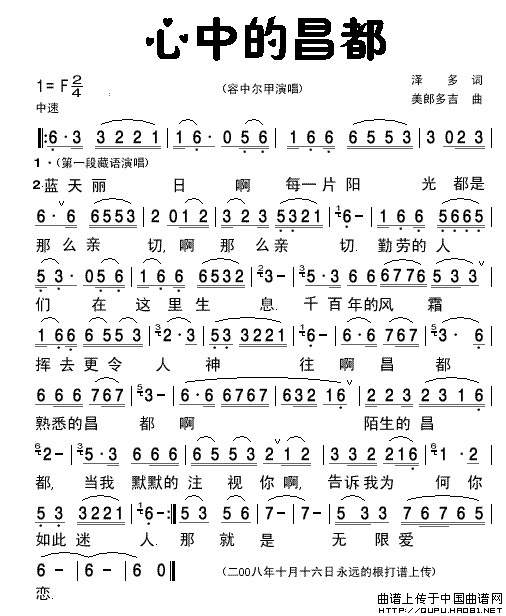 心中的昌都
1=F 2/4 （容中尔甲演唱） 泽 多 词
中速 美郎多吉 曲
‖:6·3 3221 | 16· 056 | 166 6553 | 3023 |
1·(第一段藏语演唱)
2.蓝天丽 日 啊 每一片阳 光都是
6·6 6553 | 2012 | 323 5321 | 6- | 166 5665 |
那么亲 切,啊 那么亲 切. 勤劳的人
53· 056 | 166 6532 | 3- | 5·366 6776 533 |
们 在 这里生 息. 千百年的风 霜
166 6553 | 2·3 | 53 3221 | 6- | 6·6 767 | 53· |
挥去更令 人 神 往啊昌 都
666 767 | 3- | 66 6767 | 632 16 | 223 2316 |
熟悉的昌 都啊 陌生的昌
2- | 5·3 | 6653 | 53 2 | 212 | 332 216 | 1·2 |
都, 当我 默默的注 视你啊, 告诉我为 何你
53 3221 | 6- :‖ 53 56 | 7- | 7- | 53 56 |
如此迷 人. 那 就是 无 限爱
6- | 6- | 6 0 ‖ (二00八年十月十六日永远的根打谱上传)
恋.
曲谱上传于中国曲谱网
http://QUPU.HAO81.NET